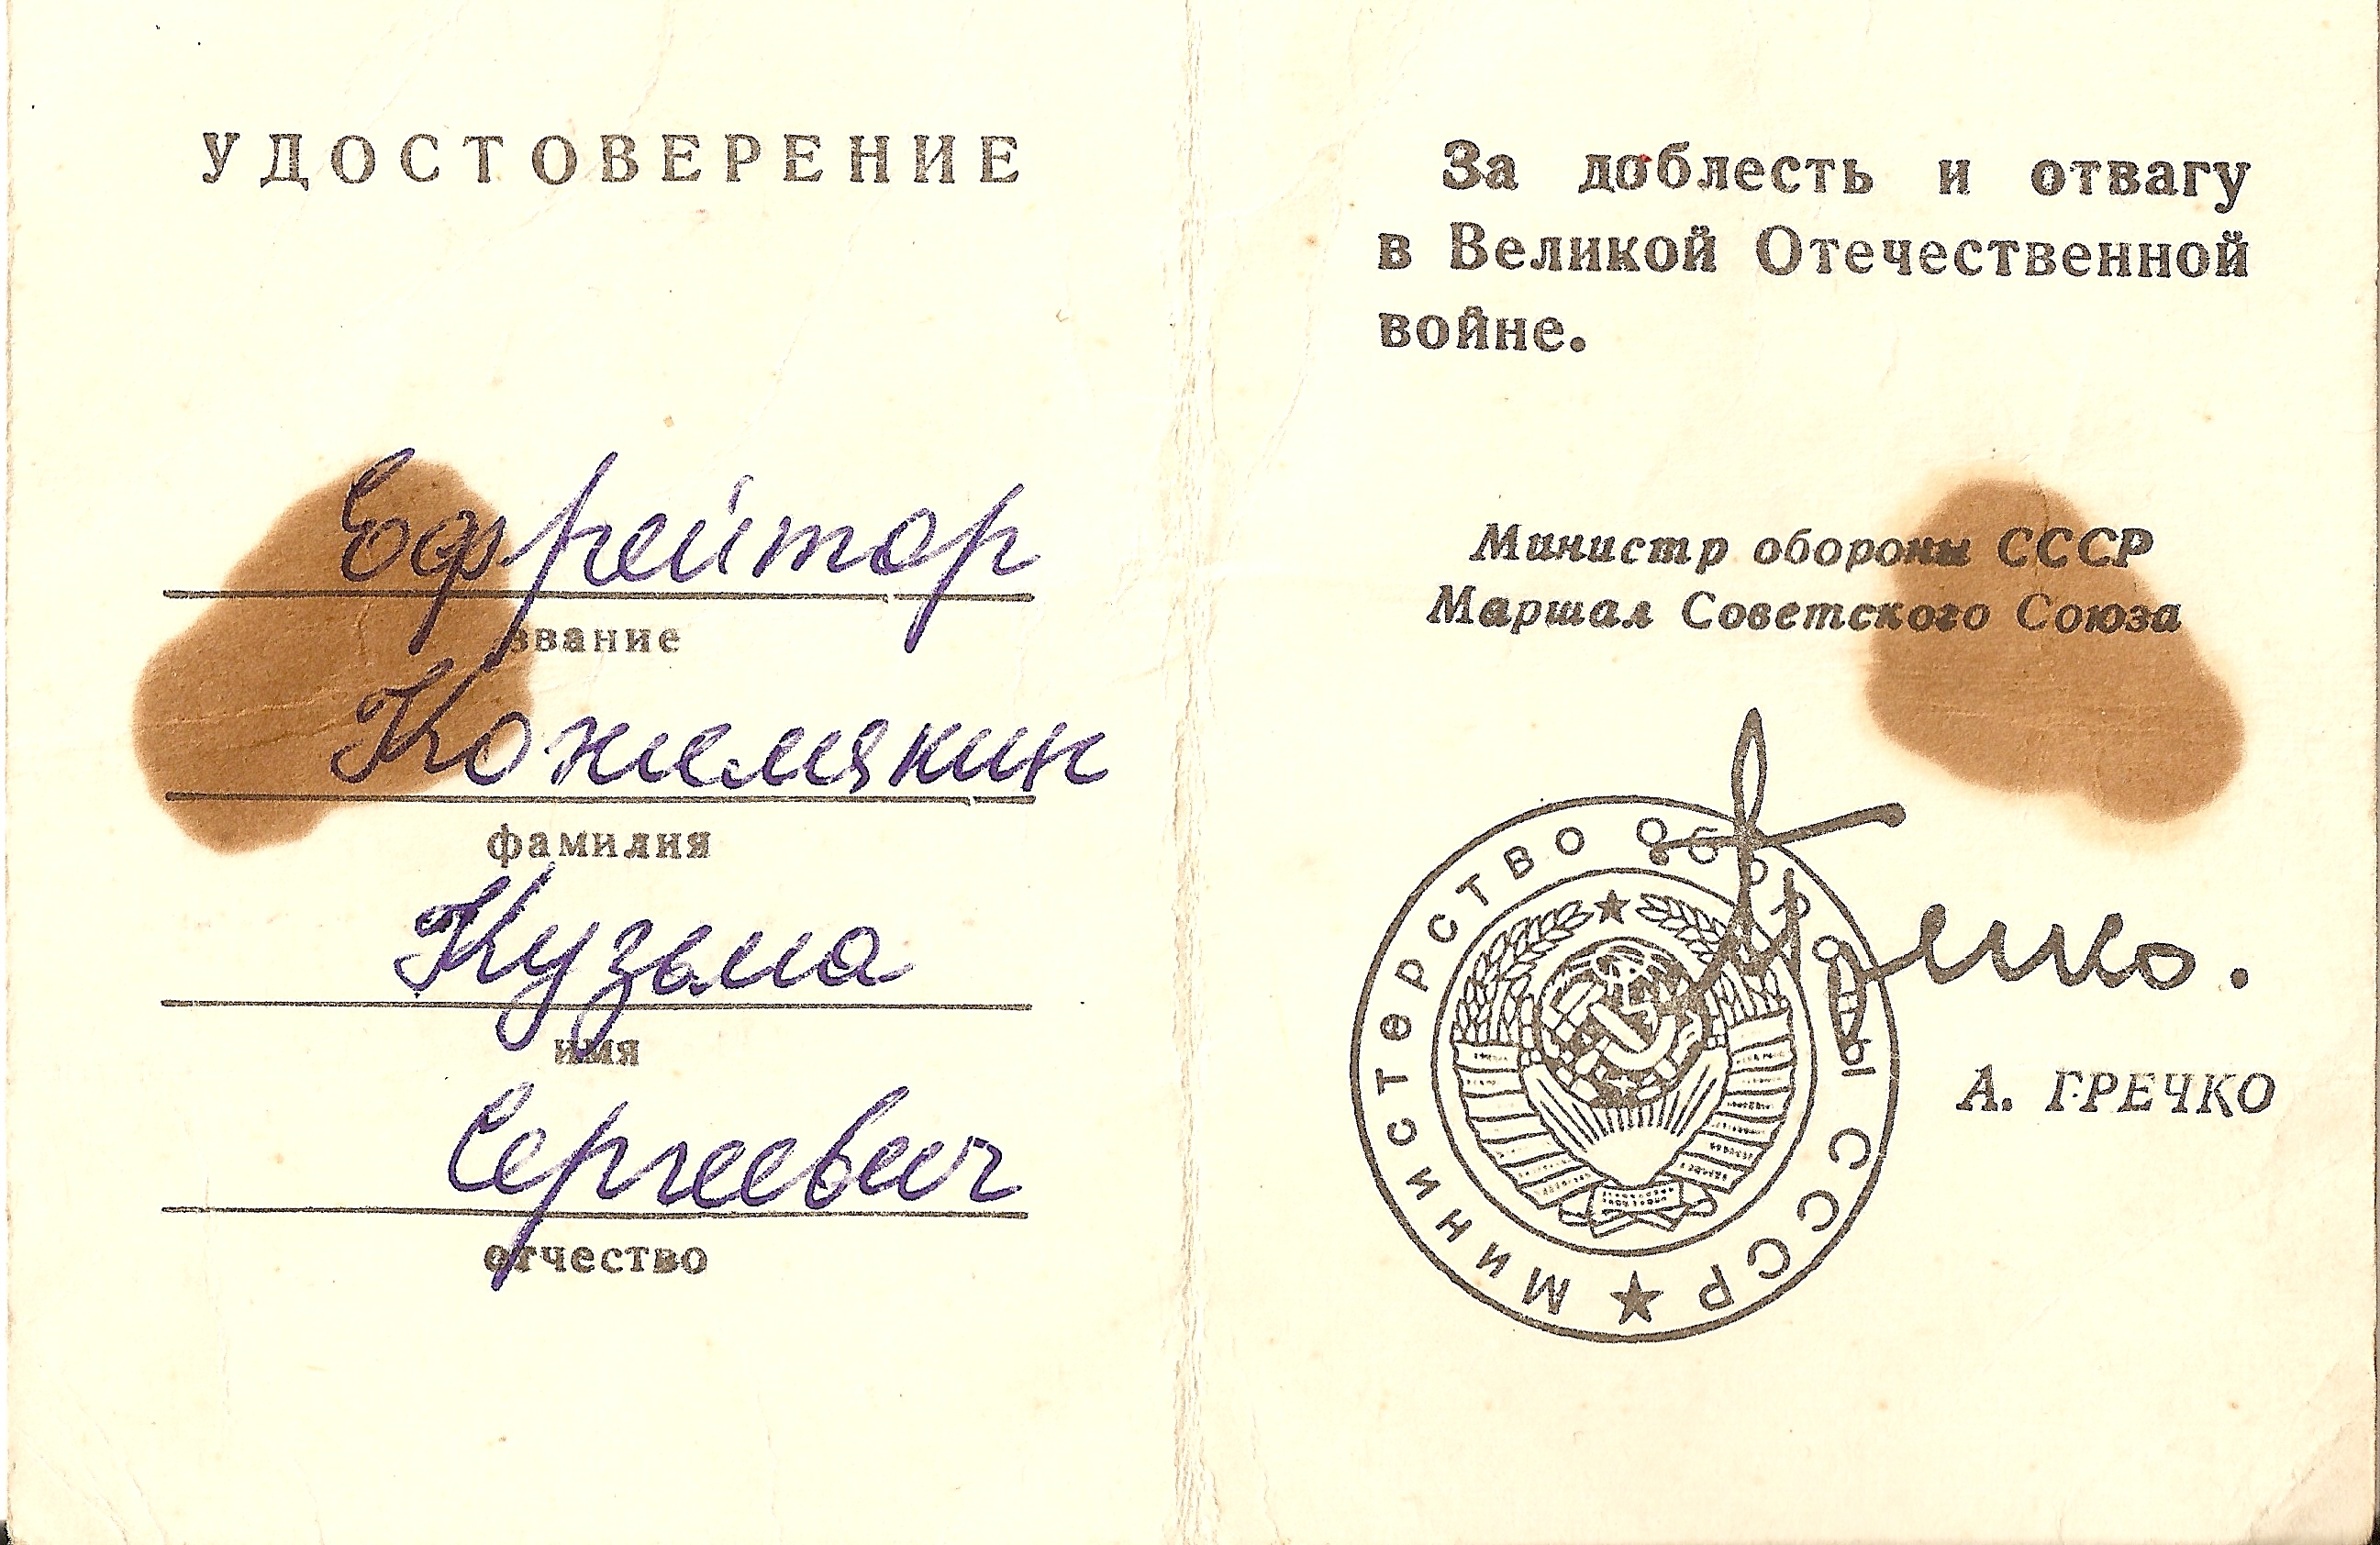 УДОСТОВЕРЕНИЕ
Ефрейтор
звание
Кожемякин
фамилия
Кузьма
имя
Сергеевич
отчество
За доблесть и отвагу
в Великой Отечественной
войне.
Министр обороны СССР
Маршал Советского Союза
Гречко.
А. ГРЕЧКО
Министерство обороны СССР